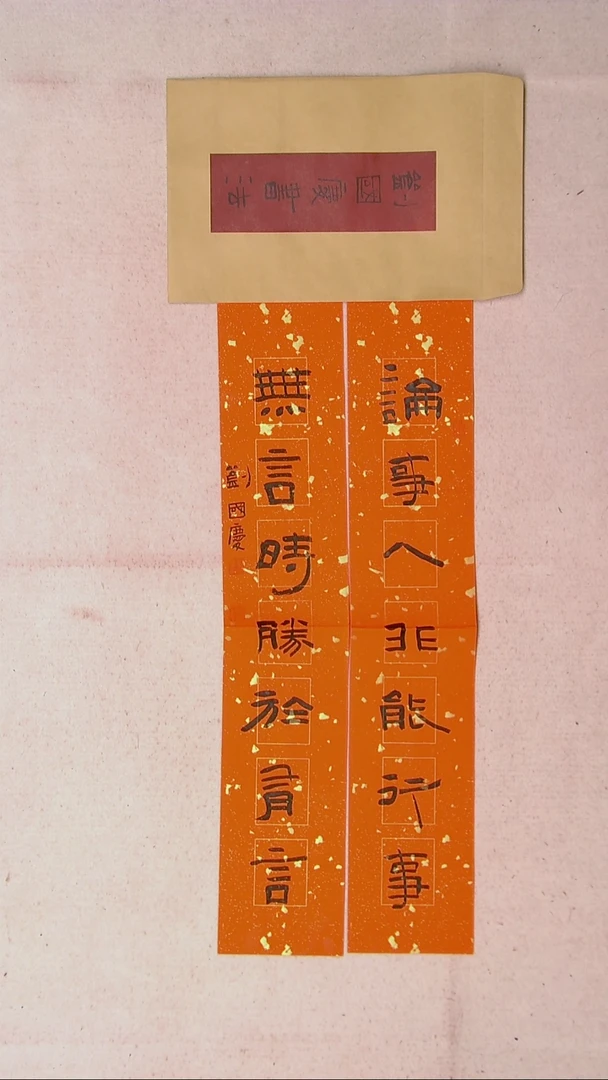 劉國慶書法
論事人非能行事
無言時勝於有言
劉國慶